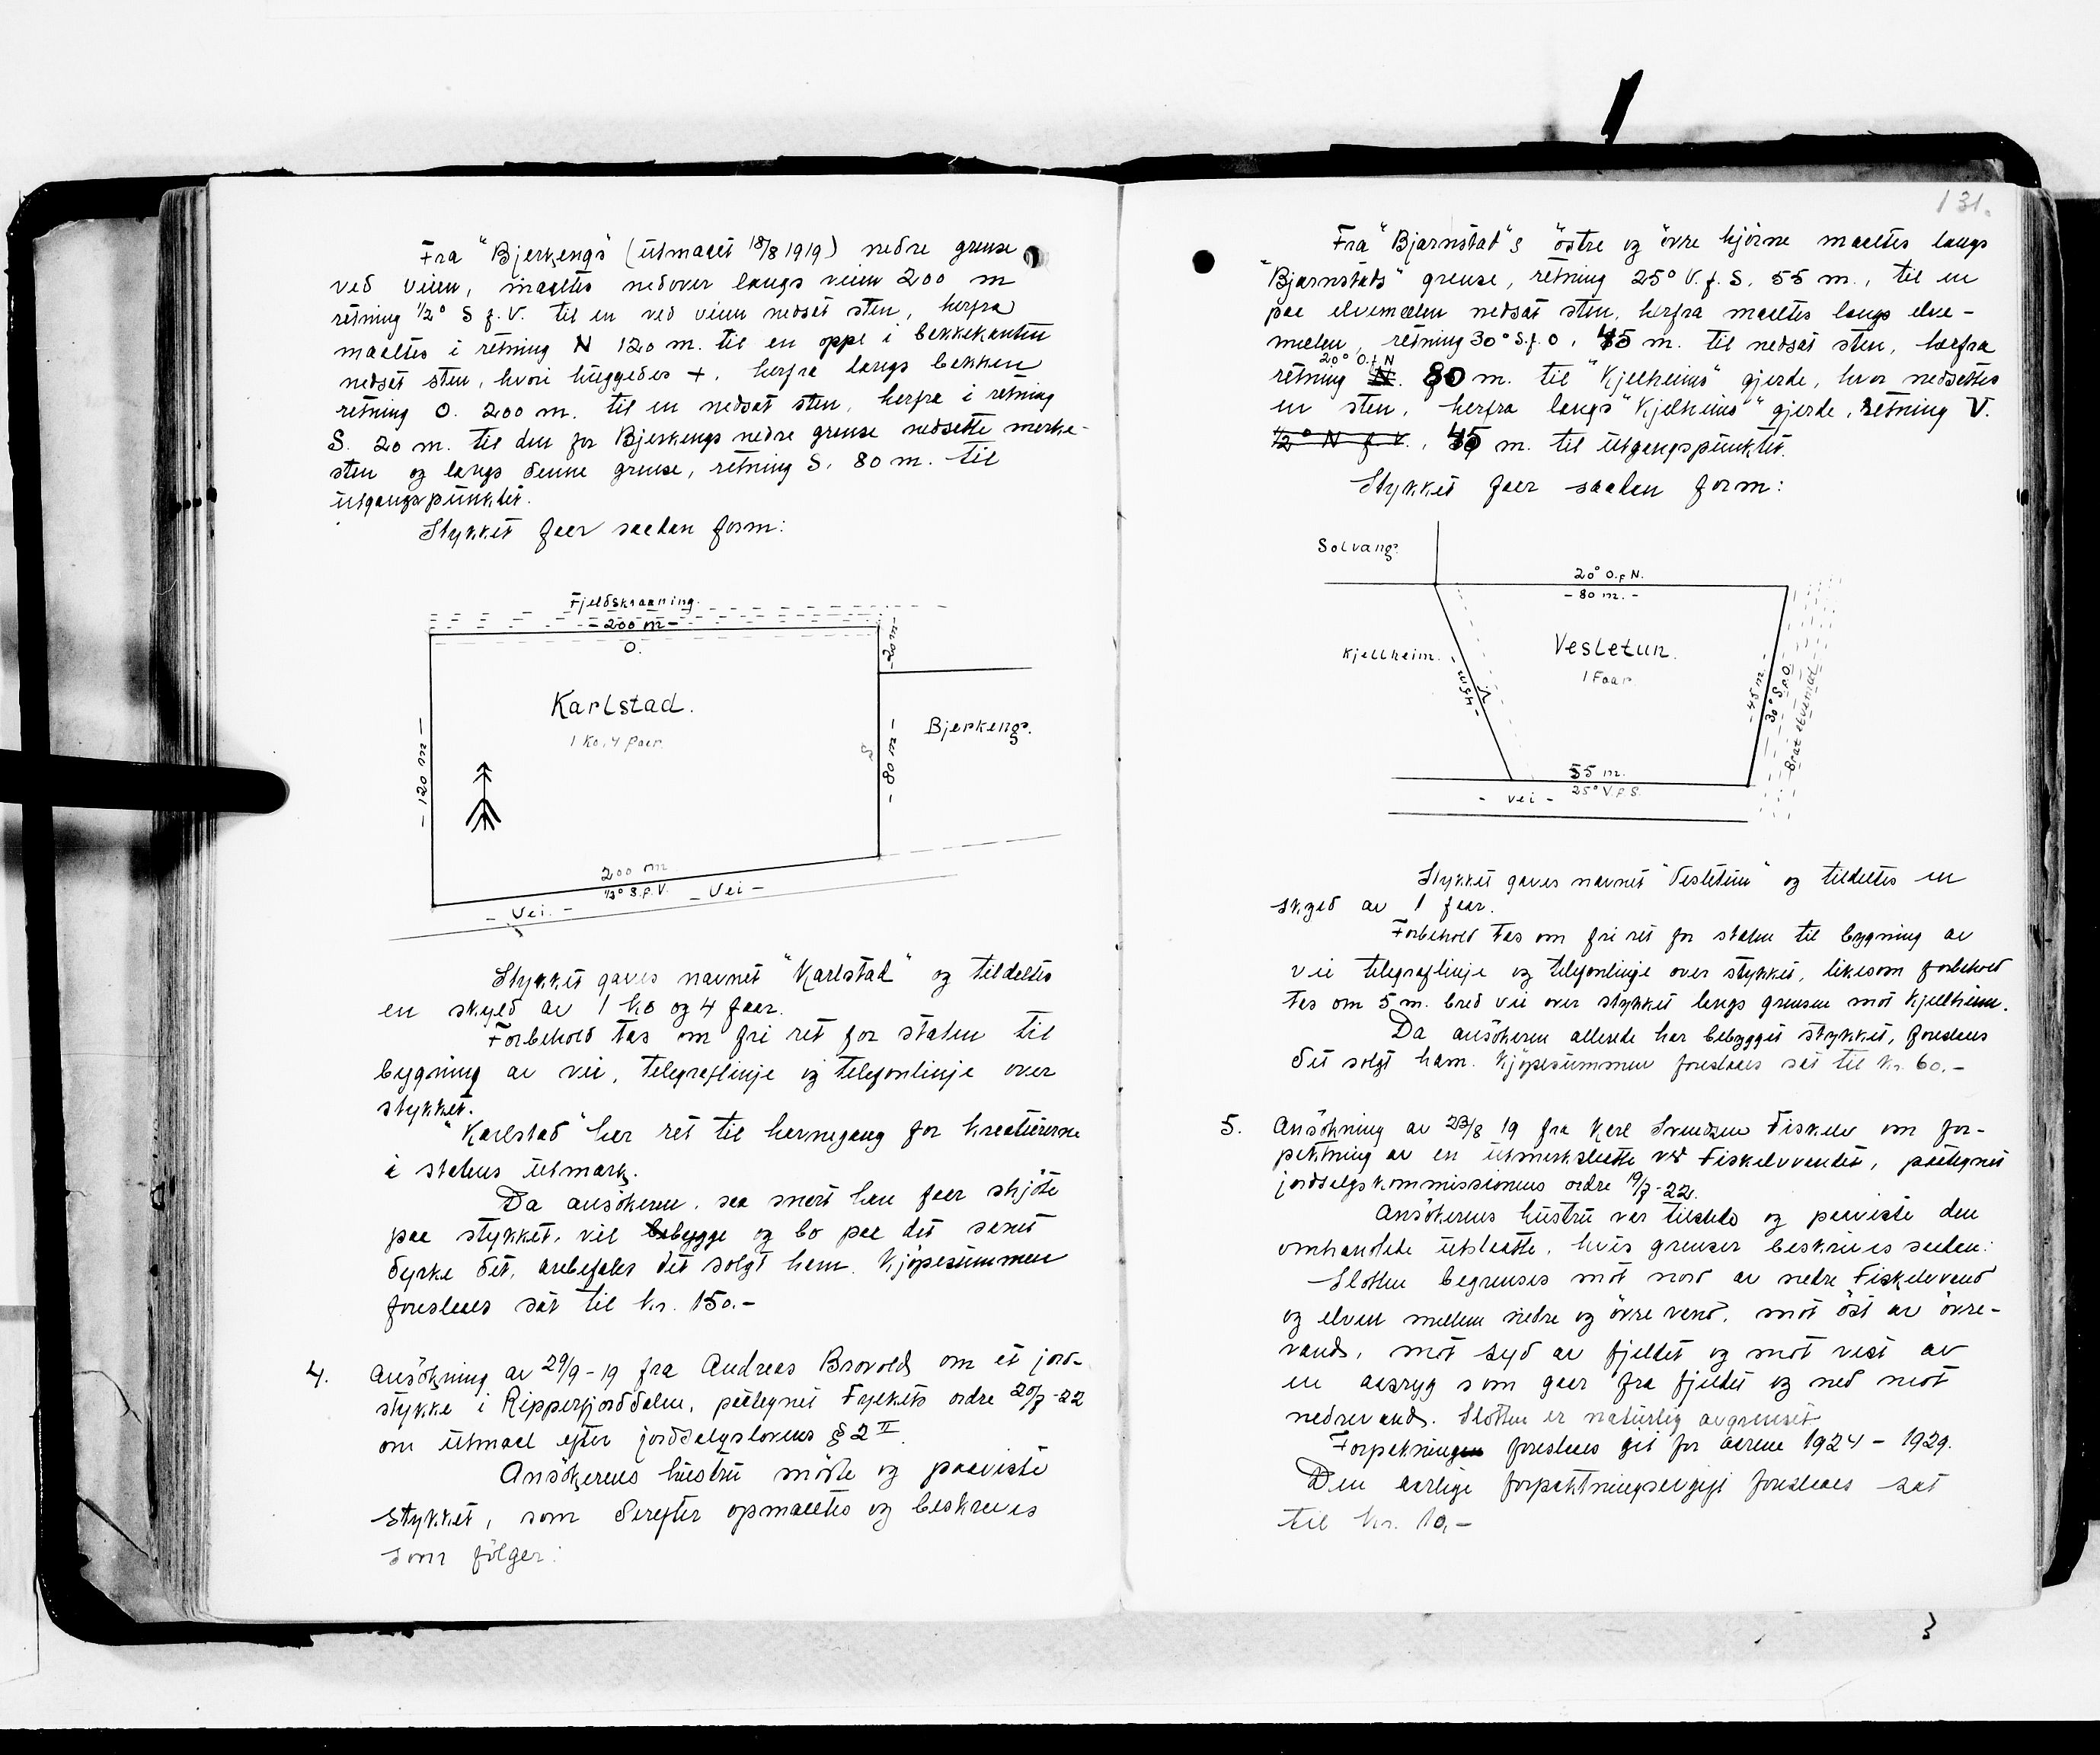 Fra "Bjerkengs" (utmaalt 18/8 1919) nedre grense
ved veien, maaltes nedover langs veien 200 m
retning ½° S f. V. til en ved veien nedsat sten, herfra
maaltes i retning N 120 m. til en oppe i bekkekanten
nedsat sten, hvori huggedes +, herfra langs bekken
retning O. 200 m. til en nedsat sten, herfra i retning
S. 20 m. til den for Bjerkengs nedre grense nedsatte merke-
sten og langs denne grense, retning S, 80 m. til
utgangspunktet.
Stykket faar saadan form:
Fjeldskraaning.
- 200 m -
O.
- 20 m -
Karlstad.
1 Ko, 4 faar.
- 120 m -
S
- 80 m -
Bjerkeng.
200 m
½° S.f.V.
- Vei -
- Vei. -
Stykket gaves navnet "Karlstad" og tildeltes
en skyld av 1 ko og 4 faar.
Forbehold tas om fri ret for staten til
bygning av vei, telegraflinje og telefonlinje over
stykket.
"Karlstad" har ret til havnegang for kreaturerne
i statens utmark.
Da ansökeren, saa snart han faar skjöte
paa stykket, vil bebygge og bo paa det samt
dyrke det, anbefales det solgt ham. Kjöpesummen
foreslaaes sat til kr. 150.-
4. Ansökning av 29/9-19 fra Andreas Brovold, om et jord-
stykke i Ripperfjorddalen, paategnet Fylkets ordre 20/7-22
om utmaal efter jordsalgslovens § 2 II.
Ansökerens hustru mötte og paaviste
stykket, som derefter opmaaltes og beskreves
som fölger:
131.
Fra "Bjarnstad"s östre og övre hjörne maaltes langs
"Bjarnstads" grense, retning 25° V. f. S, 55 m., til en
paa elvemælen nedsat sten, herfra maaltes langs elve-
mælen, retning 30° S.f. O, 45 m. til nedsat sten, herfra
20° O.f.N
retning N. 80 m. til "Kjellheims" gjerde, hvor nedsattes
en sten, herfra langs "Kjellheims" gjerde, retning V.
½° N f V., 45 m. til utgangspunktet.
Stykket faar saadan form:
Solvang.
20° O.f N.
- 80 m. -
Kjellheim.
Vesletun.
1 Faar
- 45 m -
V
- 45 m. -
30° S.f.O.
Brat elvemæl
55 m.
25° V.f.S.
- Vei -
Stykket gaves navnet "Vesletun" og tildeltes en
skyld av 1 faar.
Forbehold tas om fri ret for staten til bygning av
vei telegraflinje og telefonlinje over stykket, likesom forbehold
tas om 5 m. bred vei over stykket langs grensen mot Kjellheim.
Da ansökeren allerede har bebygget stykket, foreslaaes
det solgt ham. Kjöpesummen foreslaaes sat til kr. 60.-
5. Ansökning av 23/8 19 fra Karl Svendsen Fiskelv om for-
paktning av en utmarksslaatte ved Fiskelvvandet, paategnet
jordsalgskommissionens ordre 19/7-22.
Ansökerens hustru var tilstede og paaviste den
omhandlede utslaatte, hvis grenser beskrives saadan:
Slotten begrenses mot nord av nedre Fiskelvvand
og elven mellem nedre og övre vand, mot öst av övre-
vand, mot syd av fjeldet og mot vest av
en aasryg som gaar fra fjeldet og ned mot
nedrevand. Slotten er naturlig avgrenset.
Forpaktningen foreslaaes git for aarene 1924 - 1929.
Den aarlige forpaktningsavgift foreslaaes sat
til kr. 10,-